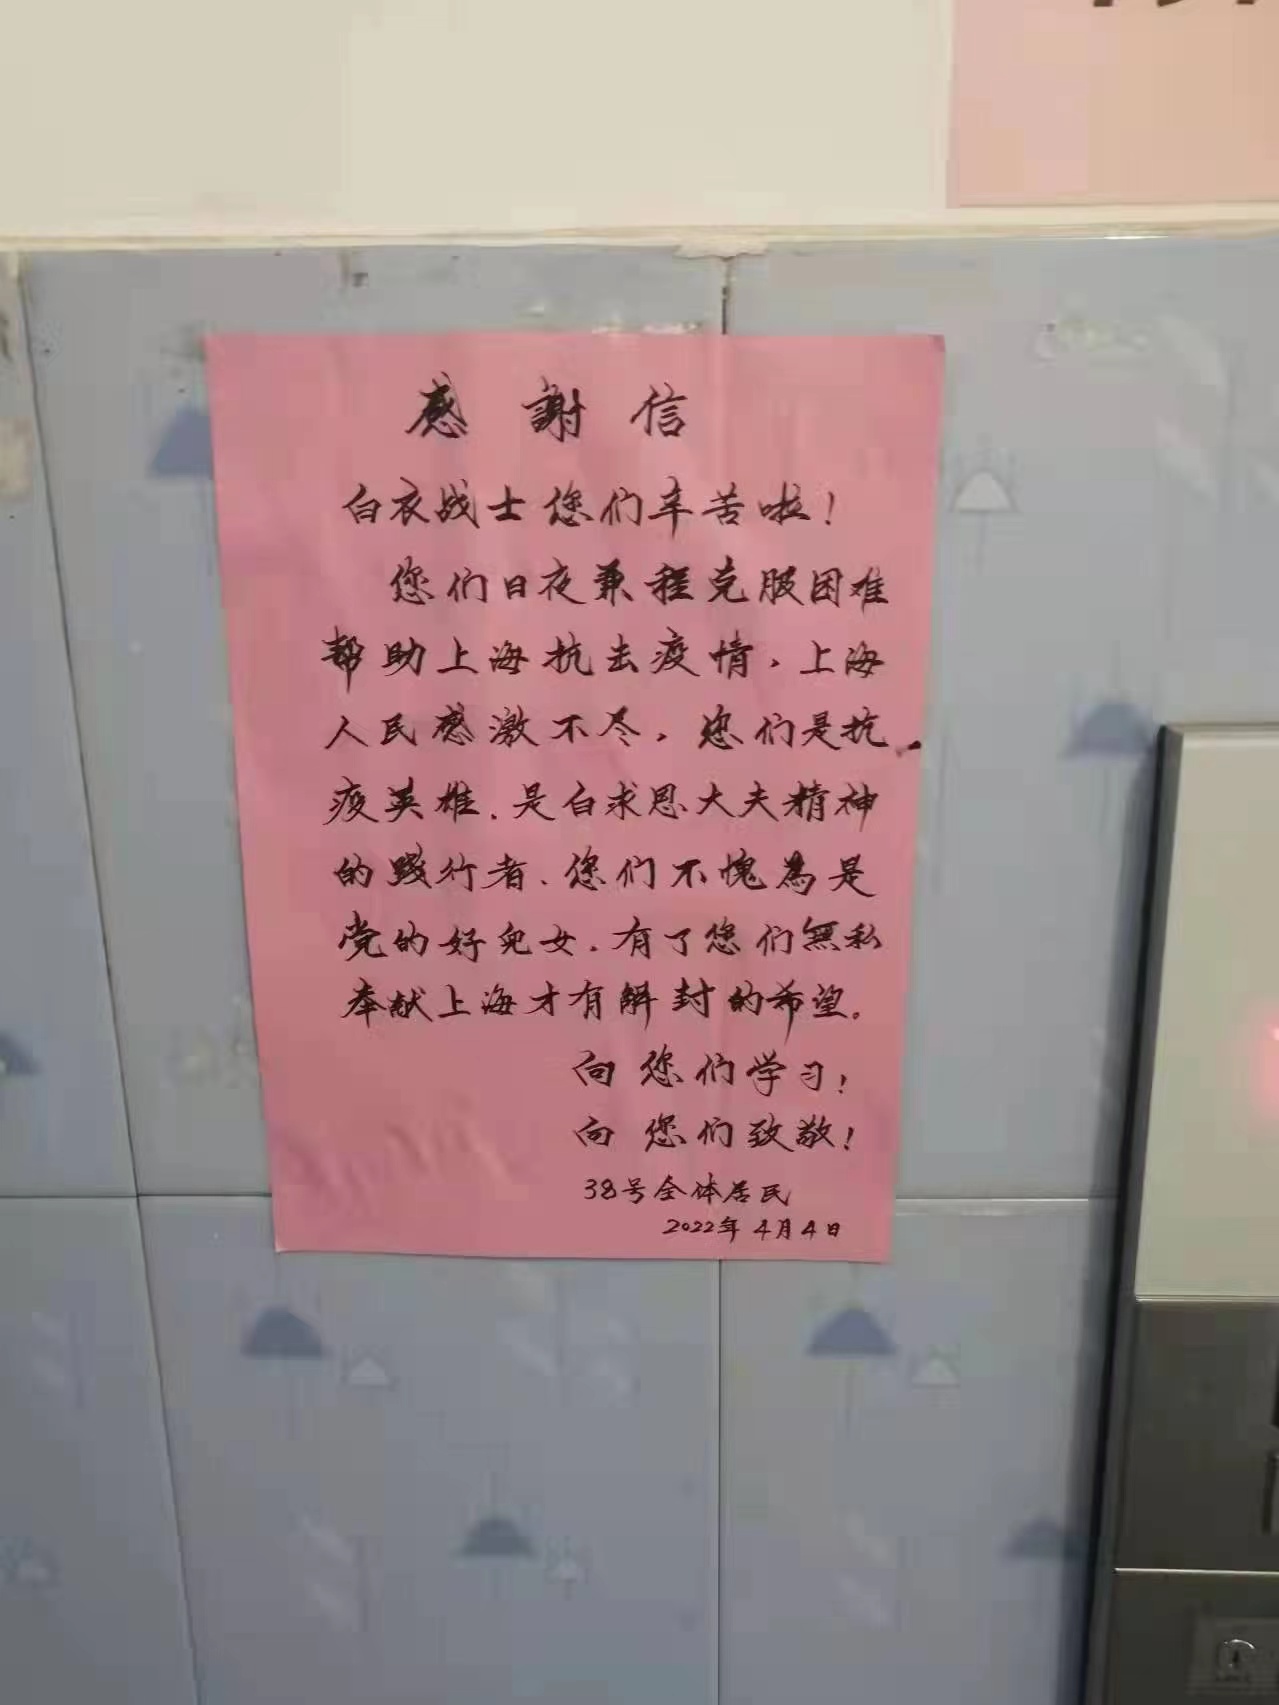 感謝信
白衣战士您们辛苦啦！
您们日夜兼程克服困难
帮助上海抗击疫情，上海
人民感激不尽，您们是抗
疫英雄、是白求恩大夫精神
的践行者、您们不愧為是
党的好儿女．有了您们無私
奉献上海才有解封的希望。
向您们学习！
向您们致敬！
38号全体居民
2022年4月4日